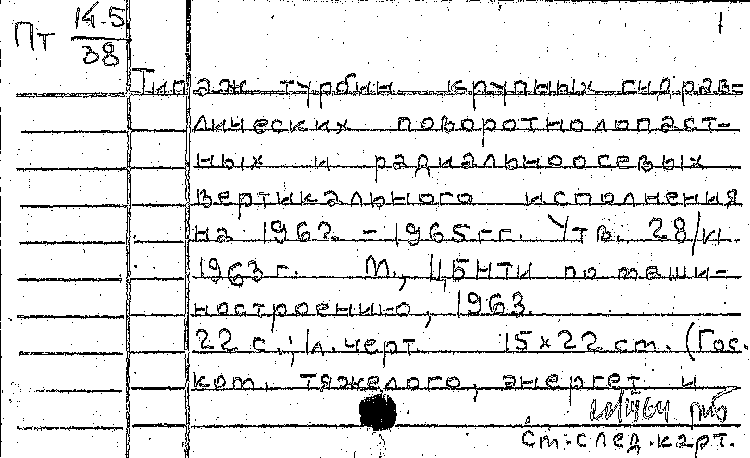 Пт 14-5/38
1
Типаж турбин крупных гидрав-
лических поворотнолопаст-
ных и радиальноосевых
вертикального исполнения
на 1962 - 1965 гг. Утв. 28/VI
1963 г. М., ЦБНТИ по маши-
ностроению, 1963.
22 с.; 1л. черт. 15×22 см. (Гос.
ком. тяжелого, энергет и
См. след. карт.